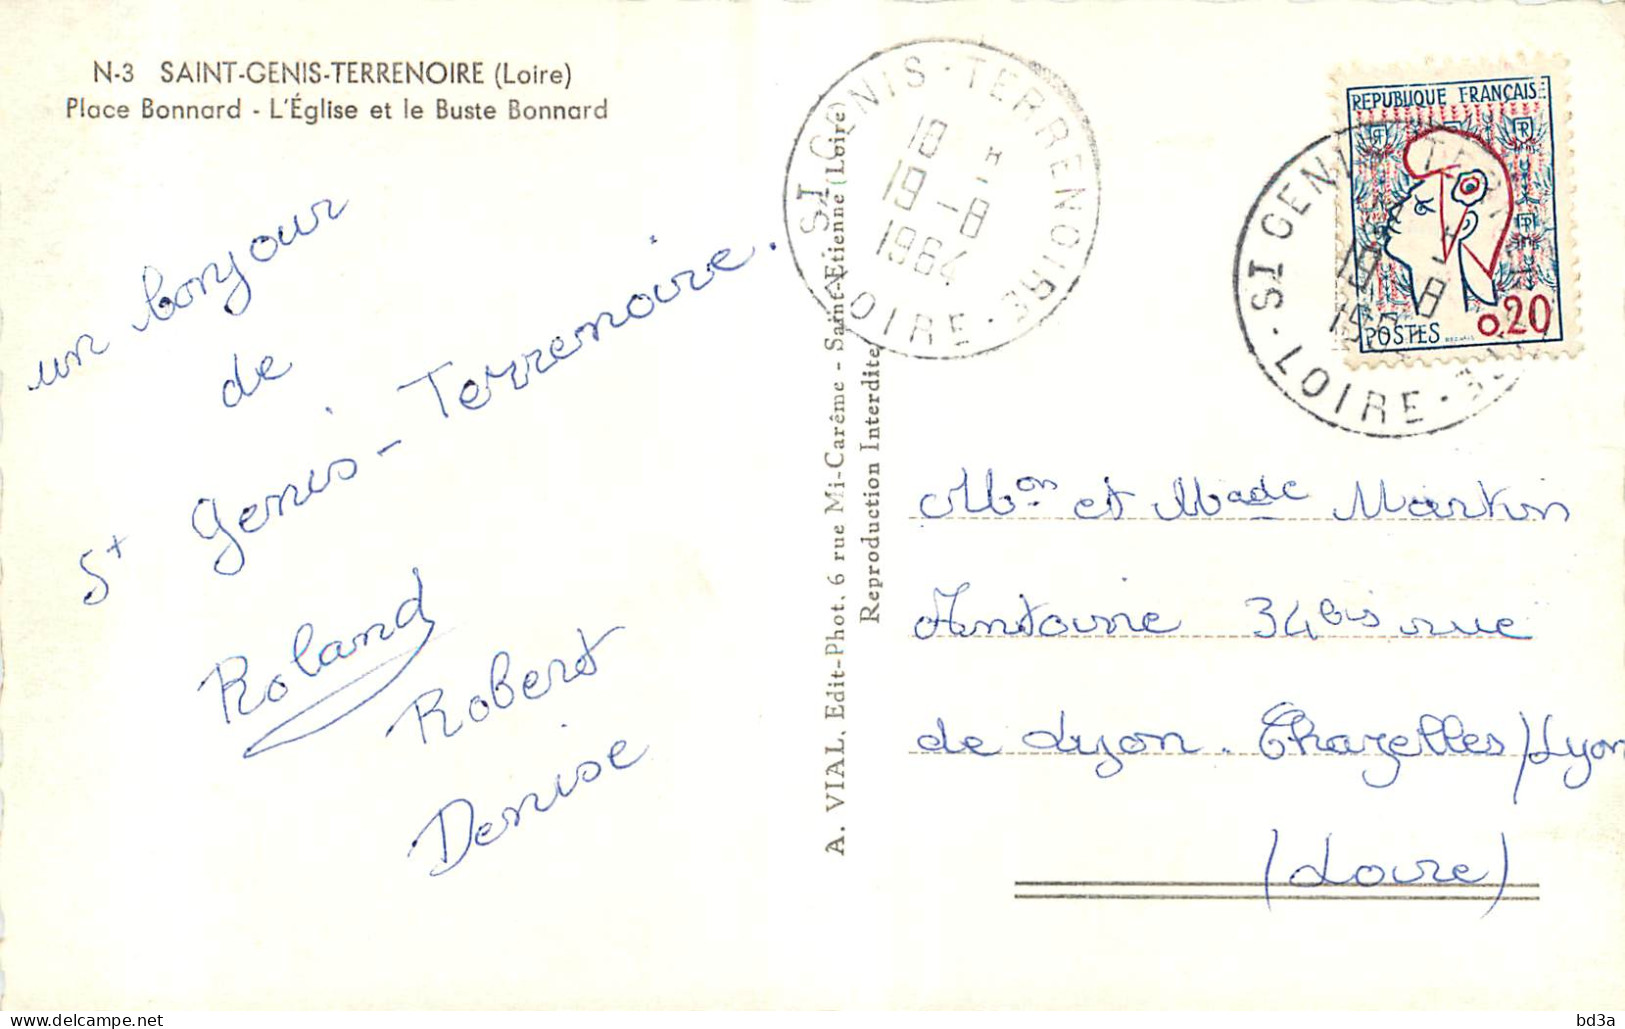 N-3 SAINT-GENIS-TERRENOIRE (Loire)
Place Bonnard - L'Église et le Buste Bonnard
un bonjour
de
St Genis-Terrenoire.
Roland
Robert
Denise
A. VIAL, Edit-Phot. 6 rue Mi-Carême - Saint-Etienne (Loire)
Reproduction Interdite
ST GENIS-TERRENOIRE
18 H
19-8
1964
LOIRE
REPUBLIQUE FRANÇAISE
POSTES
0,20
ST GENIS
19 8
LOIRE
Mon et Made Martin
Antoine 34bis rue
de Lyon. Chazelles/Lyon
(Loire)
bd3a